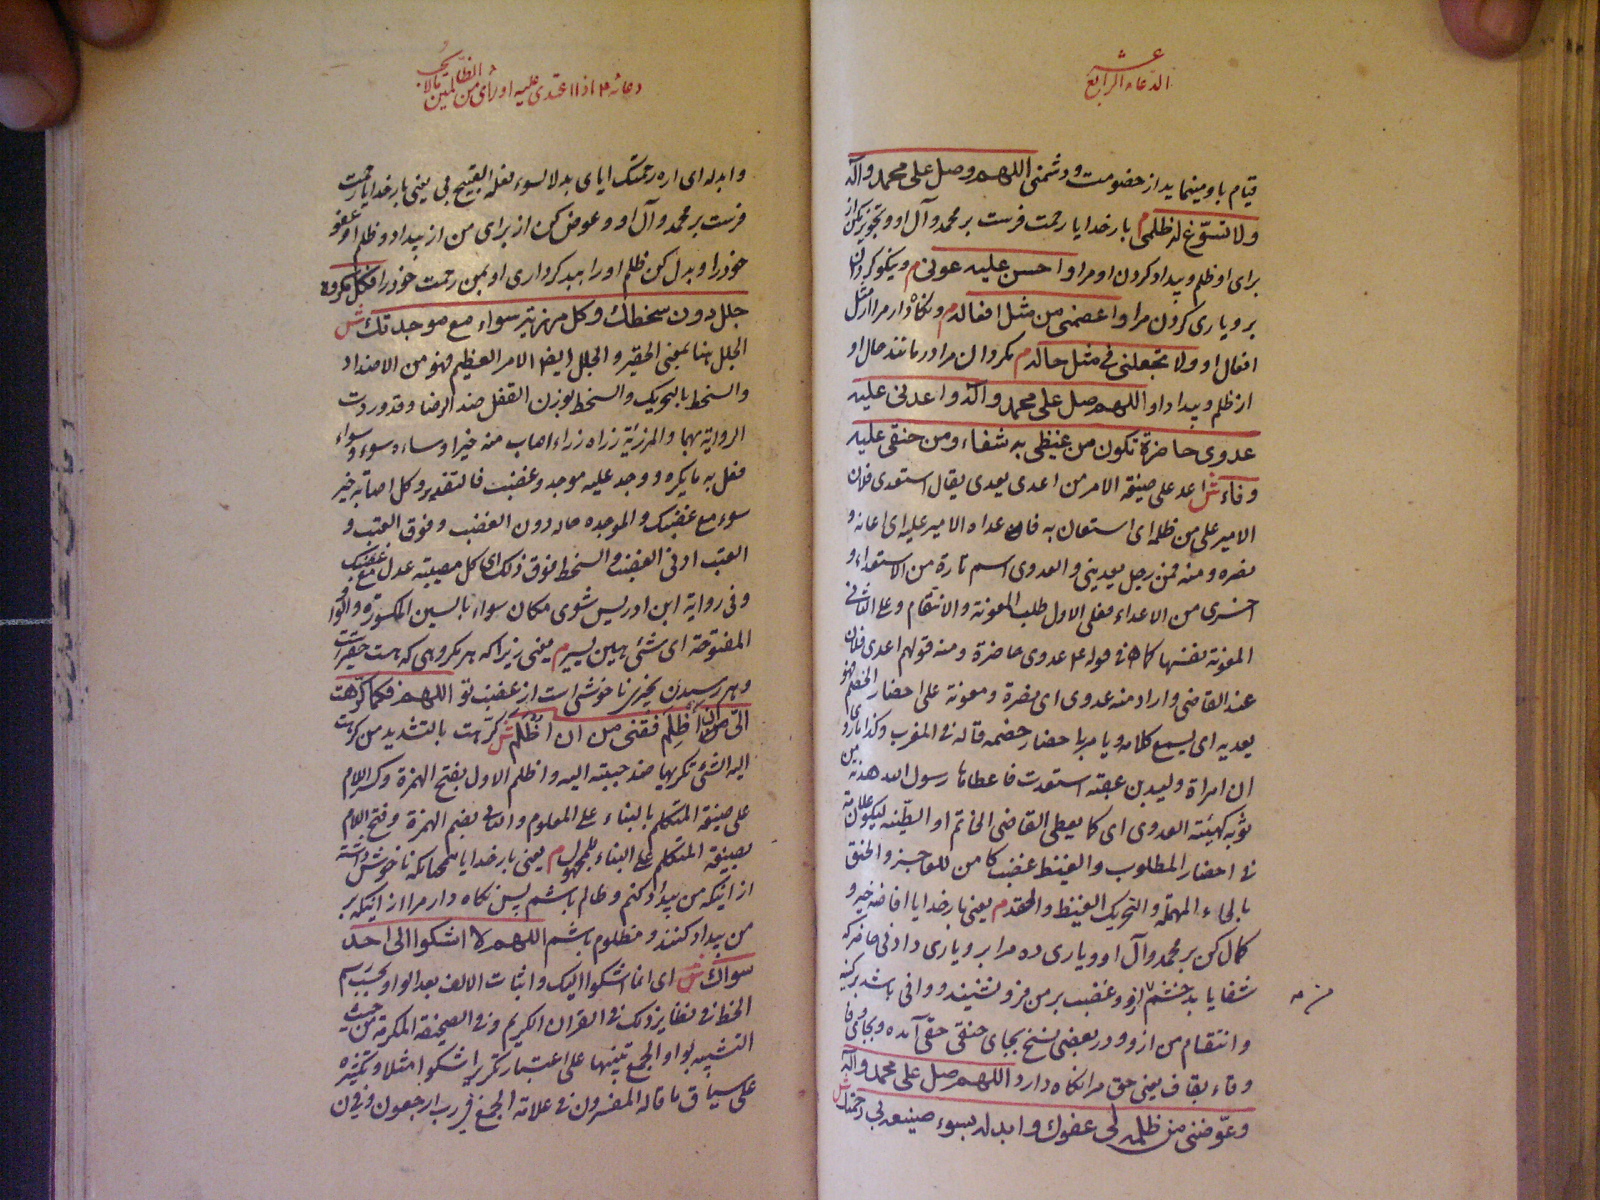 الدعاء الرابع عشر
قیام باو مینماید از خصومت و دشمنی اللهم وصل علی محمد وآله
ولا تسوغ له ظلمی م بار خدایا رحمت فرست بر محمد و آل او و تجویز مکن از
برای او ظلم و بیداد کردن او مرا واحسن علیه عونی م و نیکو کردان
بر او یاری کردن مرا واعصمنی من مثل افعاله م و نگاه دار مرا از مثل
افعال او ولا تجعلنی فی مثل حاله م مکردان مرا در مانند حال او
از ظلم و بیداد او اللهم صل علی محمد وآله واعدنی علیه
عدوی حاضرة تکون من غیظی به شفاء ومن حنقی علیه
وفاء ش اعد علی صیغة الامر من اعدی یعدی یقال استعدی فلان
الامیر علی من ظلمه ای استعان به فاعداه الامیر علیه ای اعانه و
نصره ومنه فمن رجل یعدینی والعدوی اسم تارة من الاستعداء و
اخری من الاعداء فعلی الاول طلب المعونة والانتقام وعلی الثانی
المعونة نفسها کما فی قوله ع عدوی حاضرة ومنه قولهم اعدی فلان
عند القاضی واراد منه عدوی ای نصرة ومعونة علی احضار الخصم فهو
یعدیه ای یسمع کلامه ویامر باحضار خصمه قاله فی المغرب وکذا ما روی
ان امراة ولید بن عقبة استعدت فاعطاها رسول الله هدبة من
ثوبه کهیئة العدوی ای کما یعطی القاضی الخاتم او الطینه لیکون علامة
فی احضار المطلوب والغیظ غضب کامن للعاجز والحنق
بالحاء المهملة والتحریک الغیظ والحقد م یعنی بار خدایا افاضه خیر و
کمال کن بر محمد و آل او و یاری ده مرا بر او یاری دادنی حاضر که
شفا یابد خشم از او و غضب بر من فرو نشیند و وافی باشد بر کینه
و انتقام من از او و در بعضی نسخ بجای حنقی حقی آمده و بجای وفا
وقاء بقاف یعنی حق مرا نگاه دارد اللهم صل علی محمد وآله
وعوضنی من ظلمه لی عفوک وابدلنی بسوء صنیعه بی رحمتک ش
دعائه ع اذا اعتدی علیه او رأی من الظالمین ما لا یحب
وابدله ای اره رحمتک ایای بدلا لسوء فعله القبیح بی یعنی بار خدایا رحمت
فرست بر محمد و آل او و عوض کن از برای من از بیداد و ظلم او عفو
خود را و بدل کن ظلم او را ببد کرداری او بمن رحمت خود را فکل مکروه
جلل دون سخطک وکل مرزئة سواء مع موجدتک ش
الجلل هنا بمعنی الحقیر والجلل ایضا الامر العظیم فهو من الاضداد
والسخط بالتحریک والسخط بوزن القفل ضد الرضا وقد وردت
الروایة بهما والمرزئة رزاه رزاء اصاب منه خیرا وساءه سوء وسواء
فعل به ما یکره ووجد علیه موجد وغضب فالتقدیر وکل اصابة خیر
سوء مع غضبک والموجده حاله دون الغضب وفوق العتب و
العتب ادنی الغضب والسخط فوق ذلک ای کل مصیبته عدل مع غضبک
وفی روایة ابن ادریس شوی مکان سواء بالسین المکسورة والواو
المفتوحة ای شئی هین یسیر م یعنی زیرا که هر مکروهی که هست حقیر است
و هر رسیدن بچیزی ناخوشی است از غضب تو اللهم فکما کرهت
الی ان اظلم فقنی من ان اظلم ش کرهت بالتشدید من کرهت
الیه الشئ تکریها ضد حببته الیه واظلم الاول بفتح الهمزة وکسر اللام
علی صیغة المتکلم بالبناء علی المعلوم والثانی بضم الهمزة وفتح اللام
بصیغة المتکلم علی البناء للمجهول م یعنی بار خدایا همچنانکه ناخوش داشته
از اینکه من بیداد کنم و ظالم باشم پس نگاه دار مرا از اینکه بر
من بیداد کنند و مظلوم باشم اللهم لا اشکوا الی احد
سواک ش ای انما اشکوا الیک واثبات الالف بعد الواو بحسب رسم
الخط فی نظایر ذلک فی القران الکریم وفی الصحیفة المکرمة من حیث
التشبیه بواو الجمع تنبیها علی اعتبار تکریر اشکوا مثلا وتکثیره
علی سیاق ما قاله المفسرون فی علامة الجمع فی رب ارجعون وفی ن